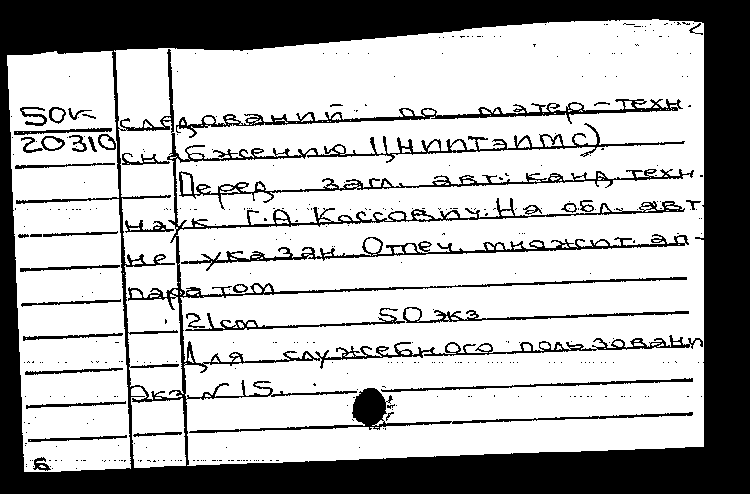 2
50к
20310
следований по матер-техн.
снабжению. ЦНИИТЭИМС).
Перед загл. авт.: канд. техн.
наук Г.А. Кассович. На обл. авт.
не указан. Отпеч. множит. ап-
паратом
21cm. 50 экз
Для служебного пользовани
Экз. N 15.
б